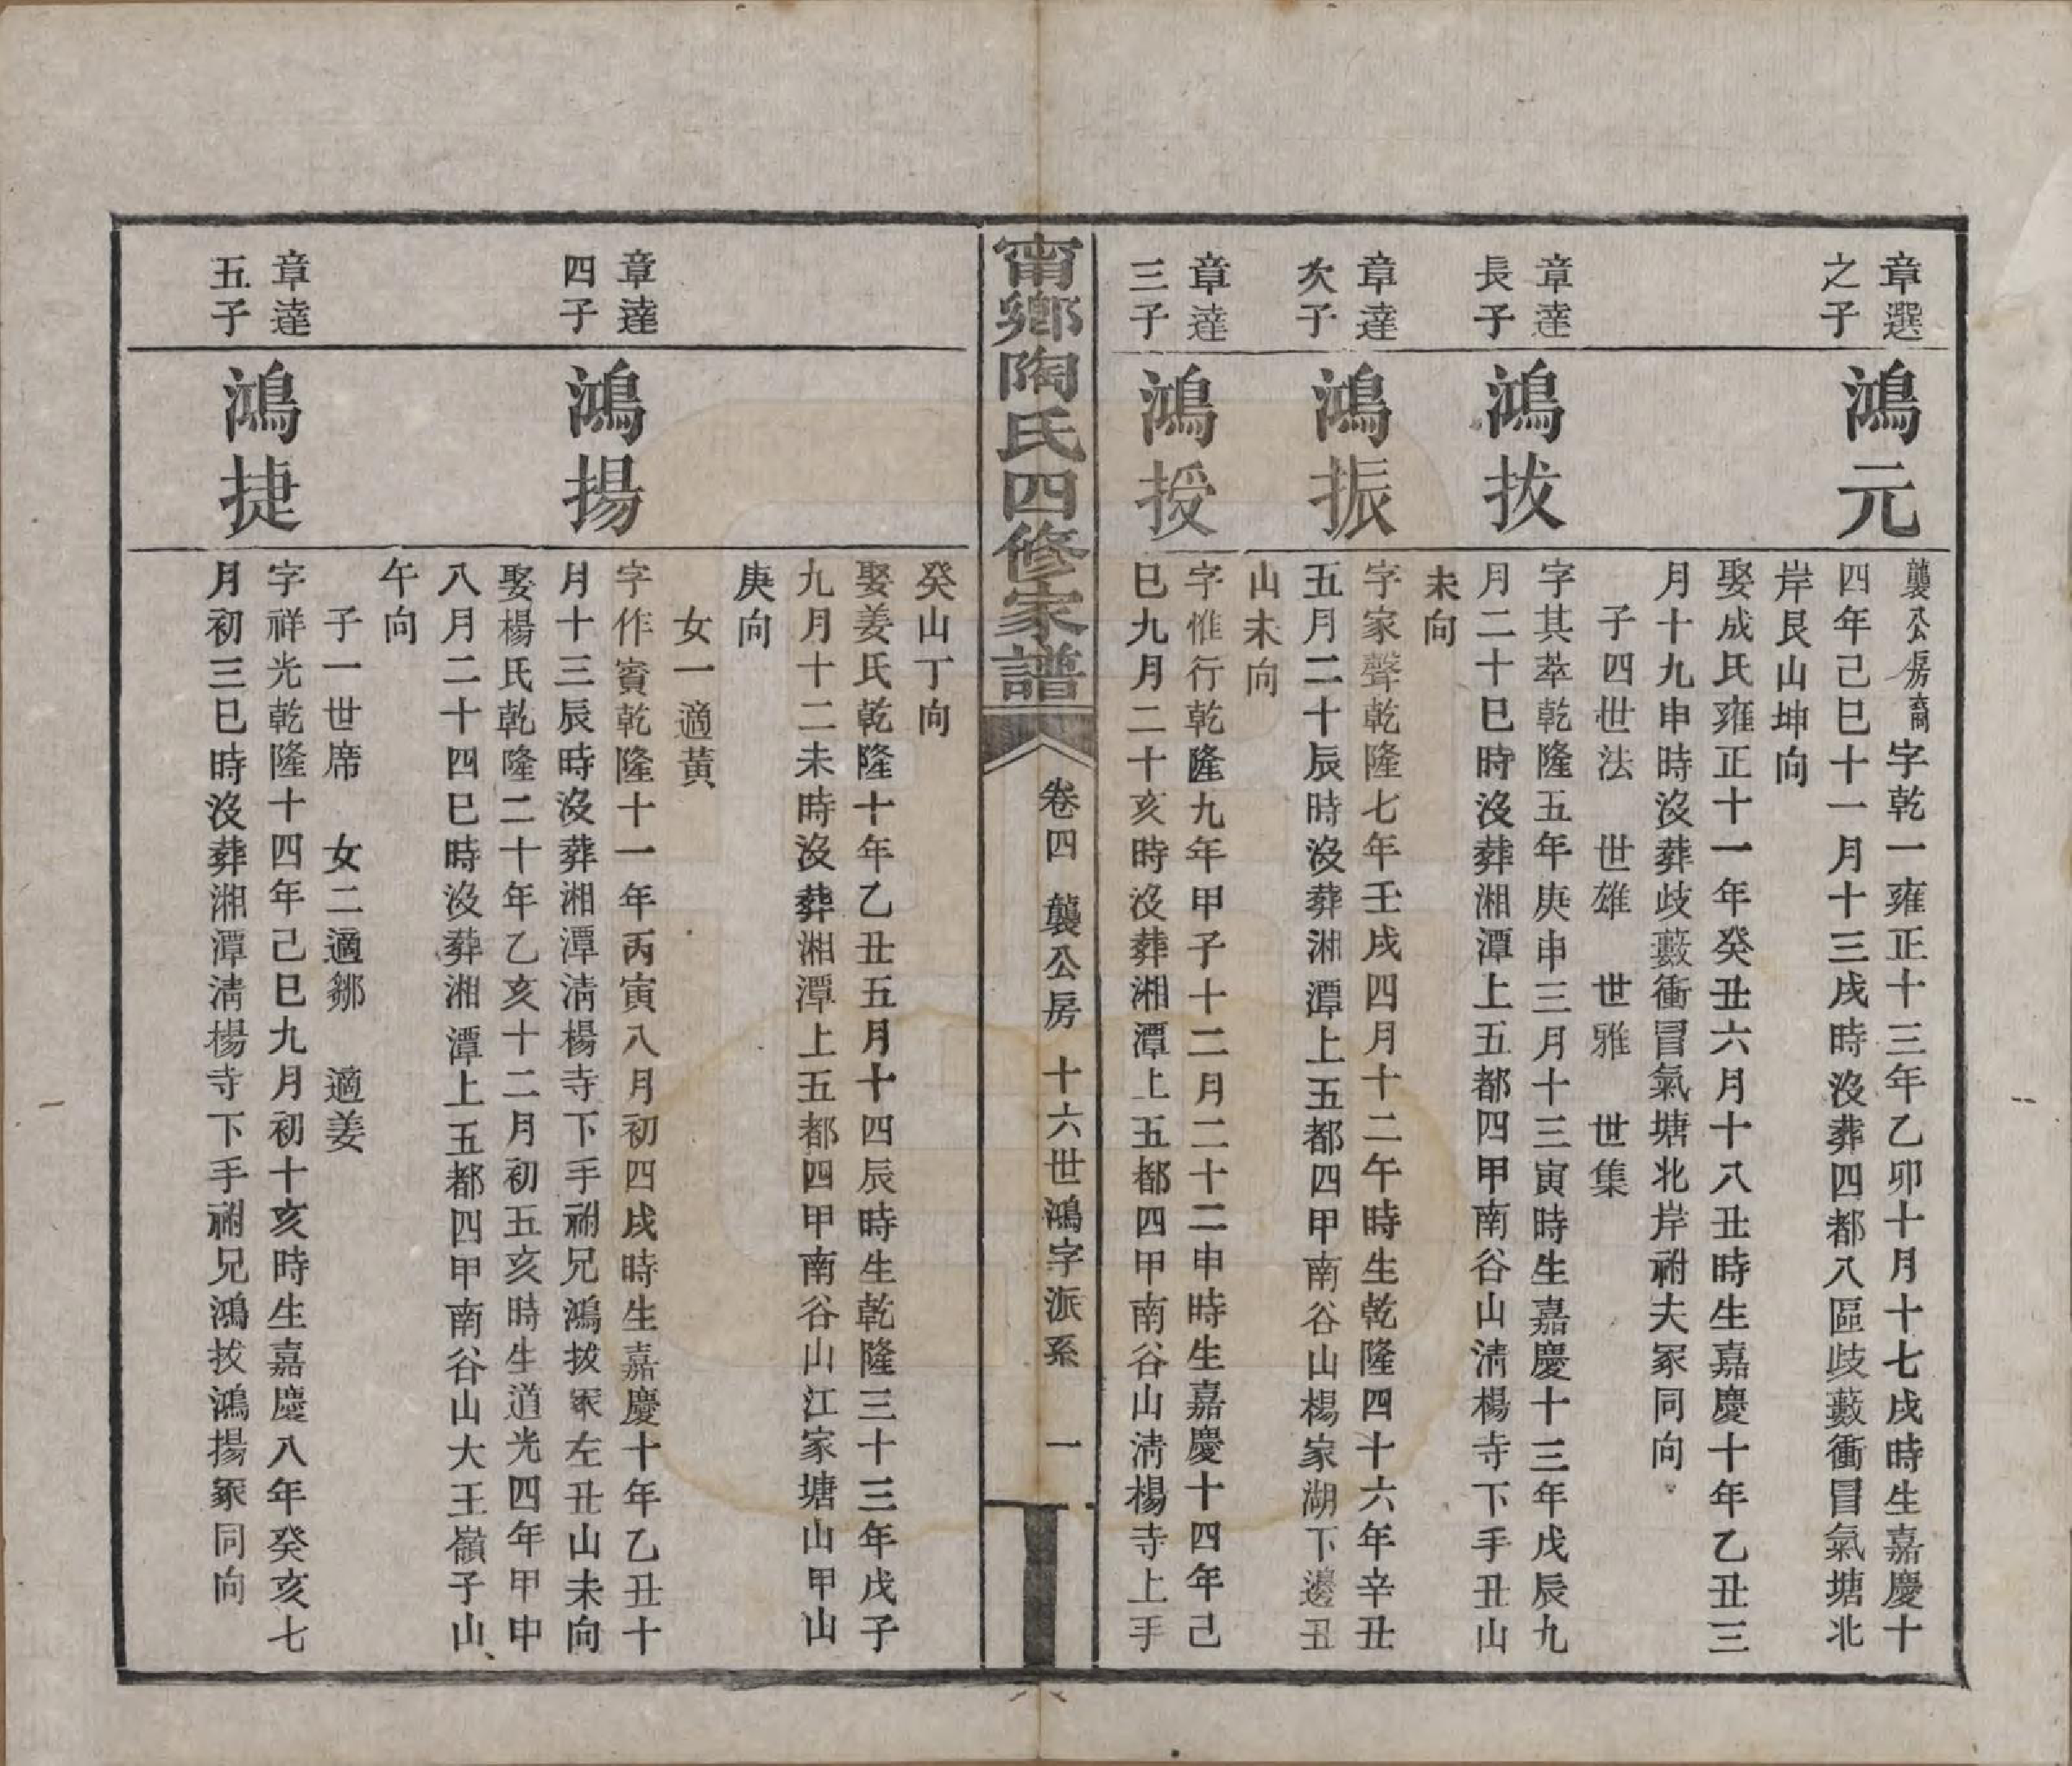 章選
之子
鴻元
龔公房裔字乾一雍正十三年乙卯十月十七戌時生嘉慶十
四年己巳十一月十三戌時沒葬四都八區歧藪衝冒氣塘北
岸艮山坤向
娶成氏雍正十一年癸丑六月十八丑時生嘉慶十年乙丑三
月十九申時沒葬歧藪衝冒氣塘北岸祔夫冢同向
子四世法　世雄　世雅　世集
章達
長子
鴻拔
字其萃乾隆五年庚申三月十三寅時生嘉慶十三年戊辰九
月二十巳時沒葬湘潭上五都四甲南谷山淸楊寺下手丑山
未向
章達
次子
鴻振
字家聲乾隆七年壬戌四月十二午時生乾隆四十六年辛丑
五月二十辰時沒葬湘潭上五都四甲南谷山楊家湖下邊丑
山未向
章達
三子
鴻授
字惟行乾隆九年甲子十二月二十二申時生嘉慶十四年己
巳九月二十亥時沒葬湘潭上五都四甲南谷山淸楊寺上手
甯鄉陶氏四修家譜
卷四　龔公房　十六世鴻字派系　一
癸山丁向
娶姜氏乾隆十年乙丑五月十四辰時生乾隆三十三年戊子
九月十二未時沒葬湘潭上五都四甲南谷山江家塘山甲山
庚向
女一適黃
章達
四子
鴻揚
字作賓乾隆十一年丙寅八月初四戌時生嘉慶十年乙丑十
月十三辰時沒葬湘潭淸楊寺下手祔兄鴻拔冢左丑山未向
娶楊氏乾隆二十年乙亥十二月初五亥時生道光四年甲申
八月二十四巳時沒葬湘潭上五都四甲南谷山大王嶺子山
午向
子一世席　女二適鄒　適姜
章達
五子
鴻捷
字祥光乾隆十四年己巳九月初十亥時生嘉慶八年癸亥七
月初三巳時沒葬湘潭淸楊寺下手祔兄鴻拔鴻揚冢同向